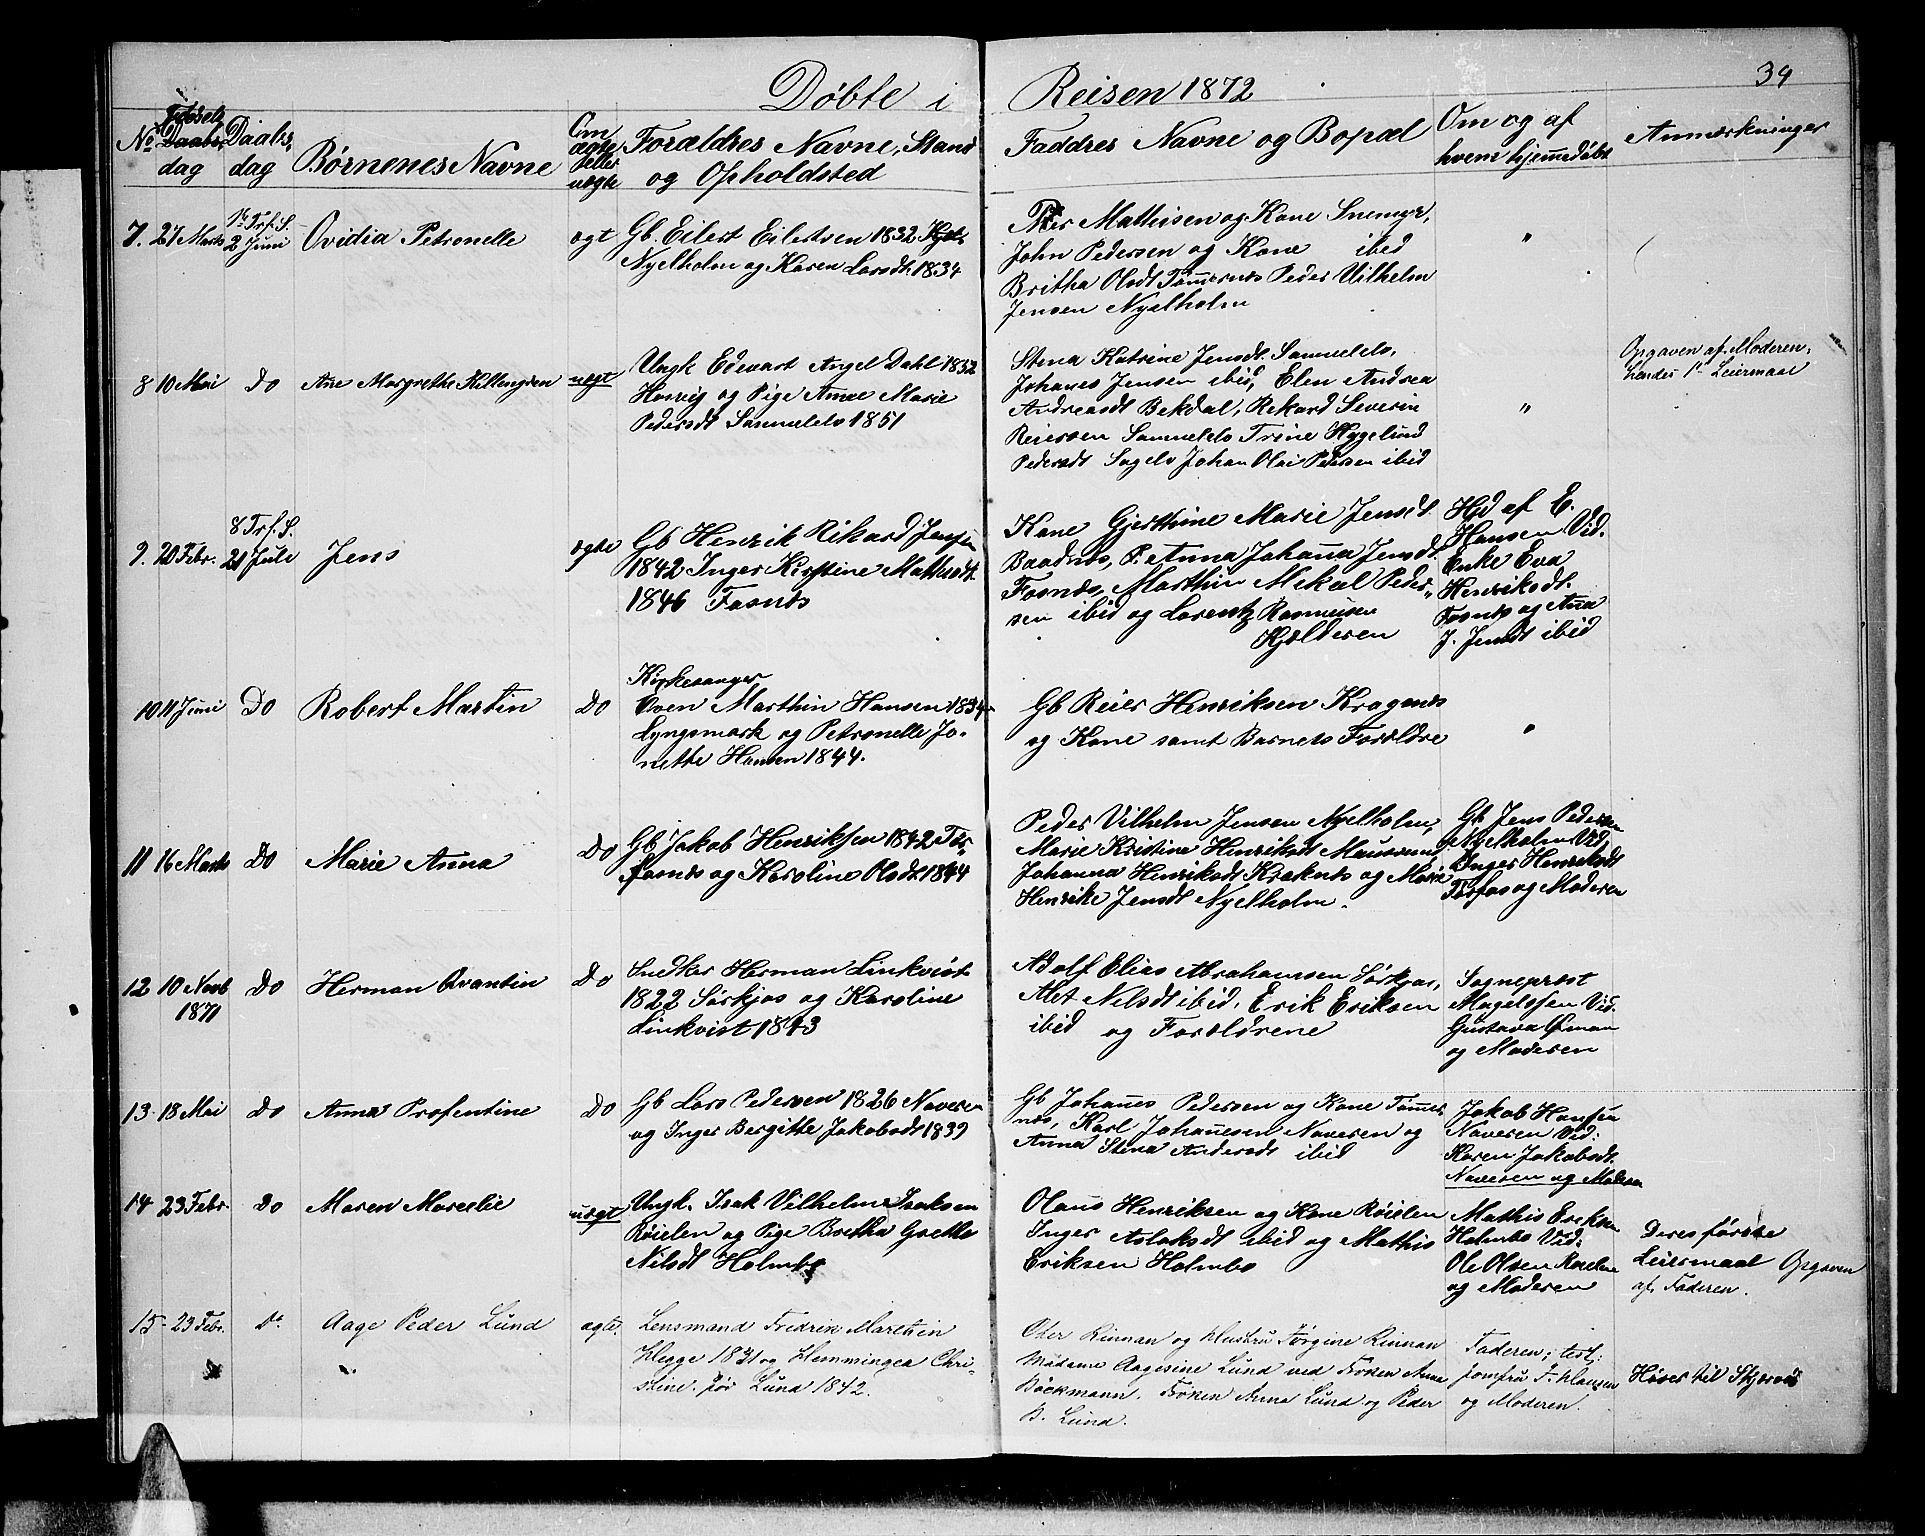 39
Døbte i Reisen 1872
No
Fødsels
Daabs,
dag
Daabs,
dag
Børnenes Navne
Om
ægte
eller
uægte
Forældres Navne, Stand
og Opholdsted
Faddres Navne og Bopæl
Om og af
hvem hjemmedøbt
Anmærkninger
7. 27 Marts
1ste Trf. S.
2 Juni
Ovidia Petronelle
ægt
Gb. Eilert Eilertsen 1832
Nyelholm og Karen Larsdt. 1834
Peter Mathisen og Kone Snemyr,
John Pedersen og Kone ibid
Britha Olsdt Tømmernes Peder Vilhelm
Jensen Nyelholm
"
8 10 Mai
Do
Ane Margrethe Killengren
uægt
Ungk Edevart Angel Dahl 1832
Havnig og Pige Anne Marie
Pedersdt Samuelelv 1851
Stena Katrine Jensdt. Samuelelv,
Johanes Jensen ibid, Elen Andrea
Andreasdt Bekdal, Rekard Severin
Reiersen Samuelelv Trine Hygelund
Pedersdt Sagelv Johan Olai Pedersen ibid
"
Opgaven af Moderen,
hendes 1ste Leiermaal
9. 20 Febr.
8 Trf. S.
21 Juli
Jens
ægte
Gb Henrik Rikard Jensen
1842 Inger Kirstine Mathisdt.
1846 Fosnes
Kone Gjerthine Marie Jensdt.
Baadnes, P. Anna Johanna Jensdt
Fosnes, Marthin Mekal Peder,,
sen ibid og Lorentz Rasmusen
Kjelderen
Hjd af E.
Hansen Vid.
Enke Eva
Henriksdt.
Fosnes og Ana
J. Jensdt ibid
10 11 Juni
Do
Robert Martin
Do
Kirkesanger
Oven Marthin Hansen 1834
Lyngsmark og Petronelle Jo-
nette Hansen 1844.
Gb Reier Henriksen Kragenes
og Kone samt Barnets Forældre
"
11 16 Marts
Do
Marie Anna
Do
Gb Jakob Henriksen 1842 Tor,
fosnes og Karoline Olsdt. 1844
Peder Vilhelm Jensen Nyelholm,
Marie Kristine Henriksdt Maursund,
Johanna Henriksdt Kraknes og Marie
Henrike Jensdt Nyelholm.
Gb Jens Pedersen
Nyelholm Vid
Inger Henriksdt
Torfos og Moderen
12 10 Novb
1871
Do
Herman Qvantin
Do
Snedker Herman Linkvist
1822 Sørkjos og Karoline
Linkvist 1843
Adolf Elias Abrahamsen Sørkjos,
Alet Nilsdt ibid, Erik Eriksen
ibid og Forældrene
Sogneprest
Magelssen Vid.
Gustava Øman
og Moderen
13 18 Mai
Do
Anna Profentine
Do
Gb Lars Pedersen 1826 Naveren
og Inger Bergitte Jakobsdt 1839
Gb Johanes Pedersen og Kone Tømmer,
nes, Karl Johanesen Naveren og
Anna Stena Andersdt ibid
Jakob Hansen
Naveren Vid:
Karen Jakobsdt.
Naveren og Moderen
14 23 Febr.
Do
Maren Marselie
uægt
Ungk. Isak Vilhelm Isaksen
Røielen og Pige Beretha Gretha
Nilsdt Holmbo
Olaus Henriksen og Kone Røielen
Inger Aslaksdt ibid og Mathis
Eriksen Holmbo
Mathis Eriksen
Holmbo Vid:
Ole Olsen Røielen
og Moderen
Deres første
Leiermaal Opgaven
af Faderen.
15 23 Febr.
Do
Aage Peder Lund
ægte.
Lensmand Fredrik Marthin
Hegge 1831 og Hemmingea Chri-
stine. før Lund 1842.
Oter Rinnan og Hustru Jørgine Rinnan
Madame Aagesine Lund ved Frøken Anna
Bäckmann. Frøken Anna Lund og Peder
B. Lund.
Faderen; test:
Jomfru F. Hansen
og Moderen.
Hører til Skjervø